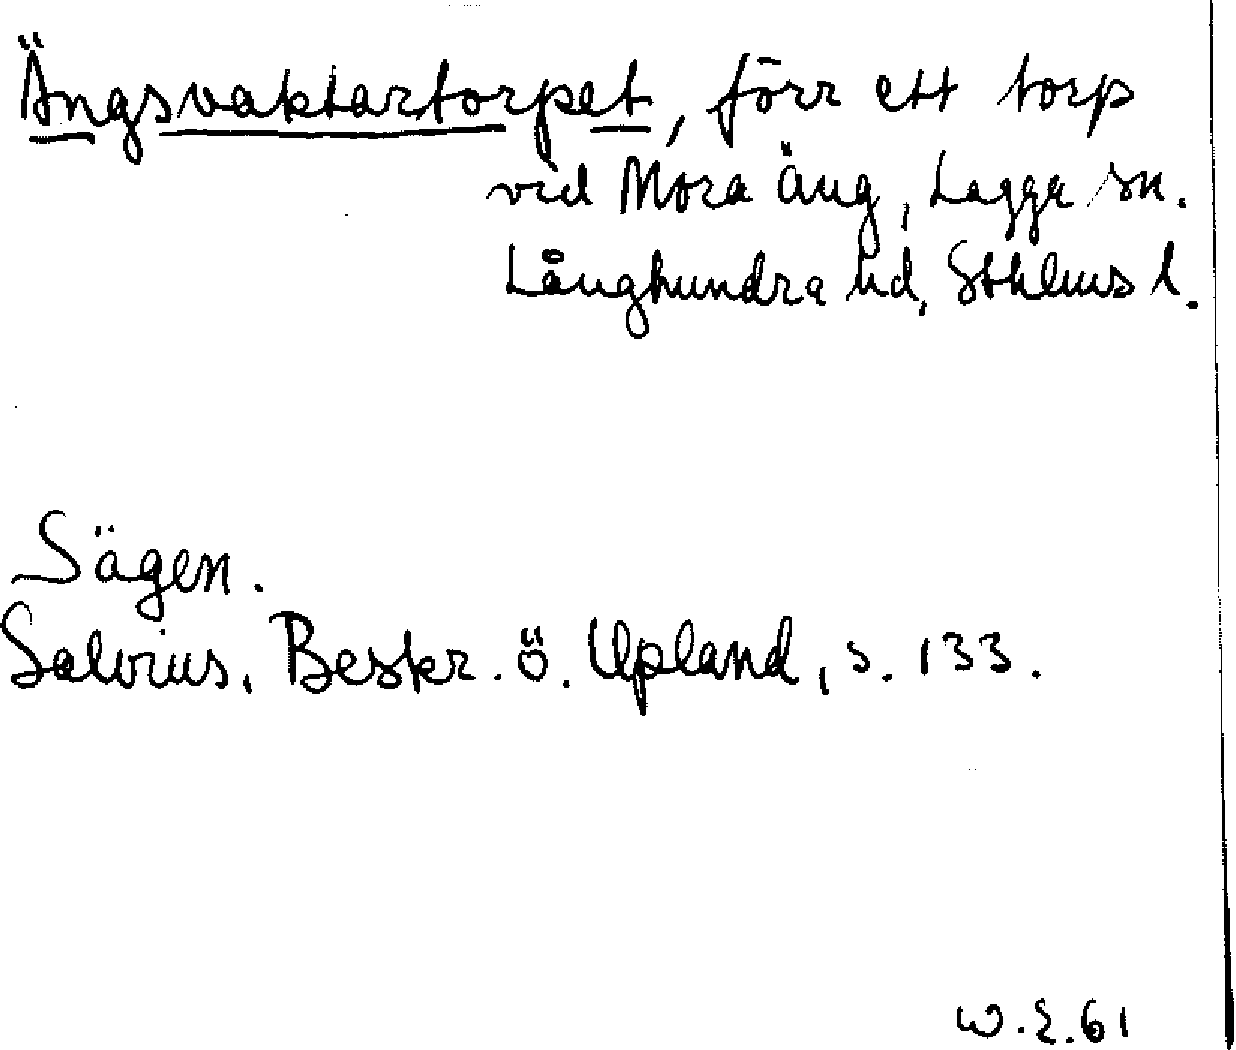 Ängsvaktartorpet, förr ett torp
vid Mora Äng, Lagga sn.
Långhundra hd, Sthlms l.
Sägen.
Salvius, Beskr. ö. Upland, s. 133.
W.E.61